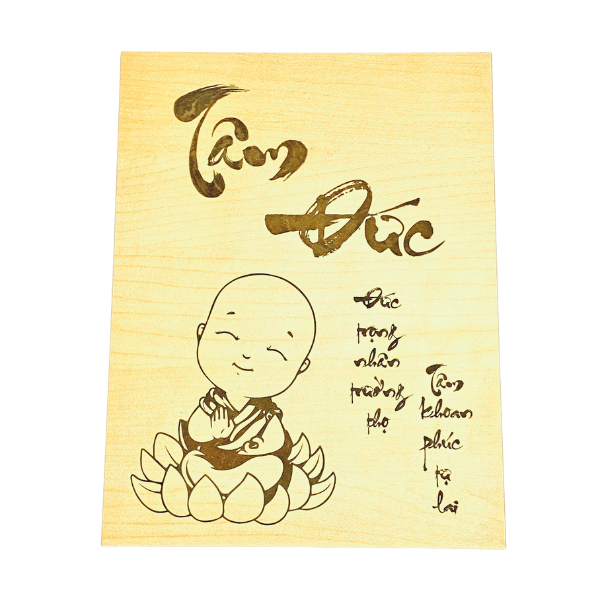 Tâm
Đức
Đức
trọng
nhân
trường
thọ
Tâm
khoan
phúc
tự
lai